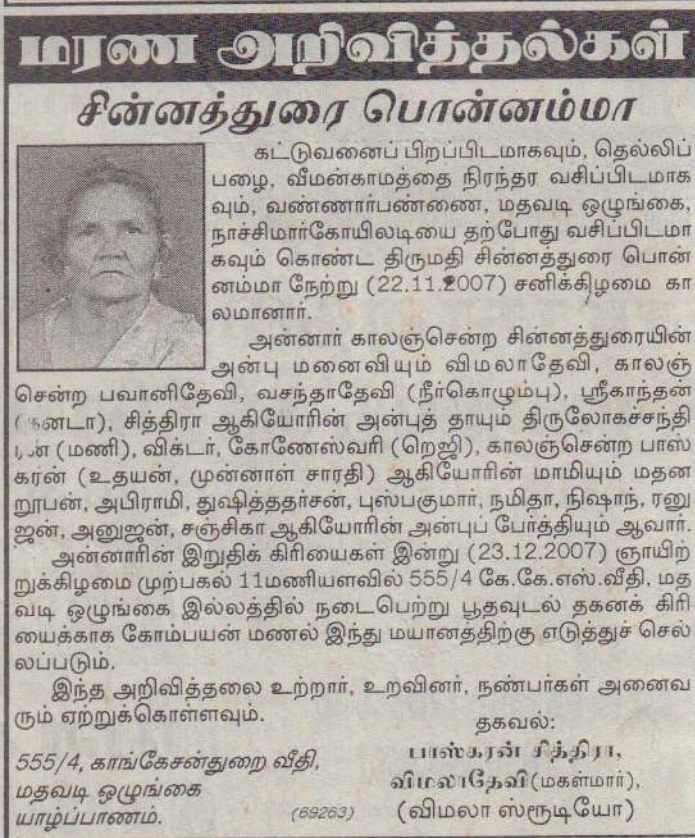 மரண அறிவித்தல்கள்
சின்னத்துரை பொன்னம்மா
கட்டுவனைப் பிறப்பிடமாகவும், தெல்லிப்
பழை, வீமன்காமத்தை நிரந்தர வசிப்பிடமாக
வும், வண்ணார்பண்ணை, மதவடி ஒழுங்கை,
நாச்சிமார்கோயிலடியை தற்போது வசிப்பிடமா
கவும் கொண்ட திருமதி சின்னத்துரை பொன்
னம்மா நேற்று (22.11.2007) சனிக்கிழமை கா
லமானார்.
அன்னார் காலஞ்சென்ற சின்னத்துரையின்
அன்பு மனைவியும் விமலாதேவி, காலஞ்
சென்ற பவானிதேவி, வசந்தாதேவி (நீர்கொழும்பு), ஸ்ரீகாந்தன்
(கனடா), சித்திரா ஆகியோரின் அன்புத் தாயும் திருலோகச்சந்தி
ரன் (மணி), விக்டர், கோணேஸ்வரி (றெஜி), காலஞ்சென்ற பாஸ்
கரன் (உதயன், முன்னாள் சாரதி) ஆகியோரின் மாமியும் மதன
றூபன், அபிராமி, துஷித்ததர்சன், புஸ்பகுமார், நமிதா, நிஷாந், ரனு
ஜன், அனுஜன், சஞ்சிகா ஆகியோரின் அன்புப் பேர்த்தியும் ஆவார்.
அன்னாரின் இறுதிக் கிரியைகள் இன்று (23.12.2007) ஞாயிற்
றுக்கிழமை முற்பகல் 11மணியளவில் 555/4 கே.கே.எஸ்.வீதி, மத
வடி ஒழுங்கை இல்லத்தில் நடைபெற்று பூதவுடல் தகனக் கிரி
யைக்காக கோம்பயன் மணல் இந்து மயானத்திற்கு எடுத்துச் செல்
லப்படும்.
இந்த அறிவித்தலை உற்றார், உறவினர், நண்பர்கள் அனைவ
ரும் ஏற்றுக்கொள்ளவும்.
தகவல்:
பாஸ்கரன் சித்திரா,
விமலாதேவி(மகள்மார்),
(விமலா ஸ்ரூடியோ)
555/4, காங்கேசன்துறை வீதி,
மதவடி ஒழுங்கை
யாழ்ப்பாணம்.
(69263)